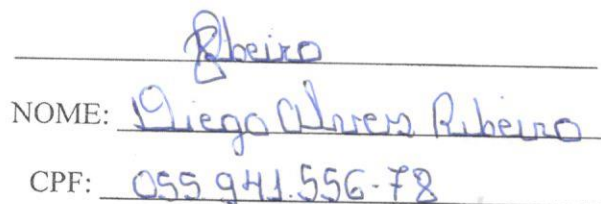 Ribeiro
NOME: Diego Alves Ribeiro
CPF: 055.941.556-78